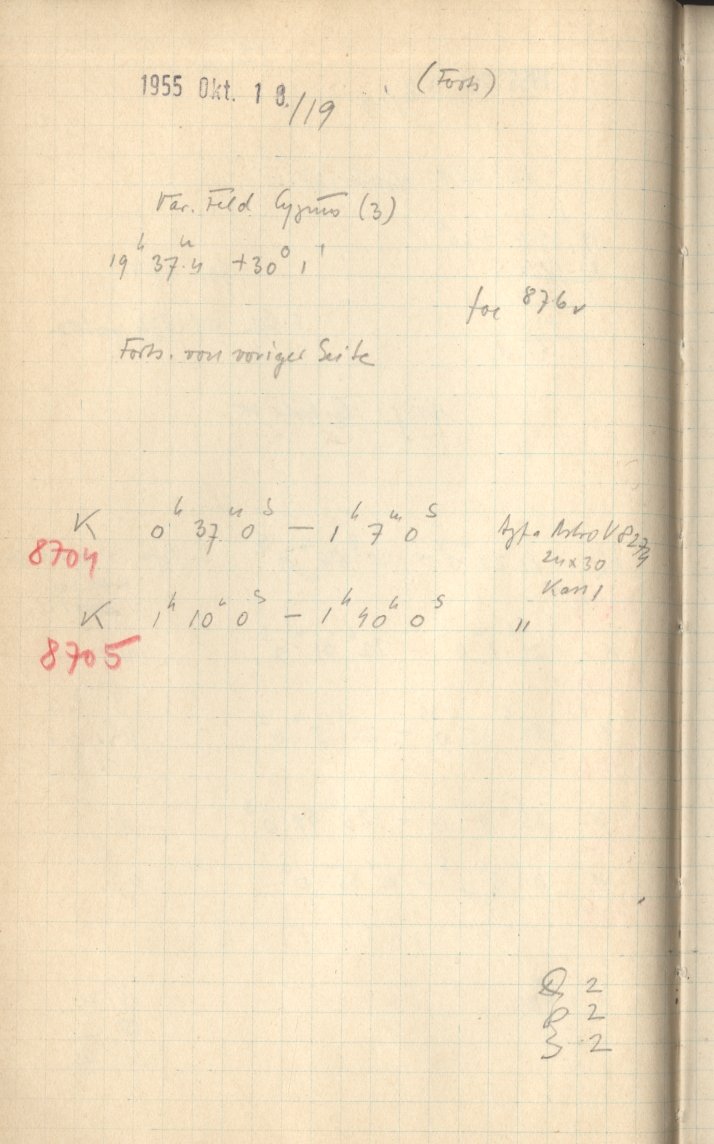 1955 Okt. 18./19 (Forts)
Var. Feld Cygnus (3)
19h 37m.4 +30° 1'
foc 876
Forts. von voriger Seite
K 0h 37m 0s — 1h 7m 0s Agfa Astro V 8274
8704
24x30
Kass 1
K 1h 10m 0s — 1h 40m 0s "
8705
2
2
3 2